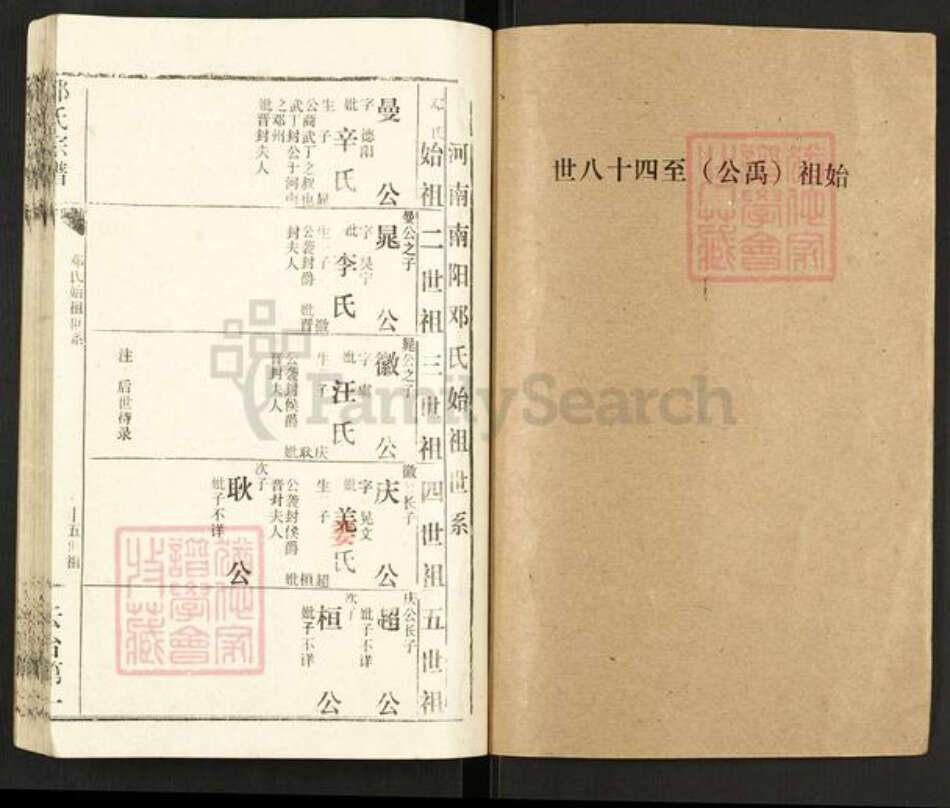 始祖（禹公）至四十八世
河南南阳邓氏始祖世系
始祖
曼公
字 德阳
妣 辛氏
生子 晁
公商武丁之叔也
武丁封公于河南
之邓州
妣晋封夫人
二世祖
曼公之子
晁公
字 昊宁
妣 李氏
生子 徽
公袭封爵 妣晋
封夫人
三世祖
晁公之子
徽公
字
妣 汪氏
生子 庆 耿
公袭封侯爵 妣
晋封夫人
注 后世待录
四世祖
徽公长子
庆公
字 晃文
妣 姜氏
生子 超 桓
公袭封侯爵 妣
晋封夫人
次子
耿公
妣子不详
五世祖
庆公长子
超公
妣子不详
次子
桓公
妣子不详
邓氏宗谱
邓氏始祖世系
FamilySearch